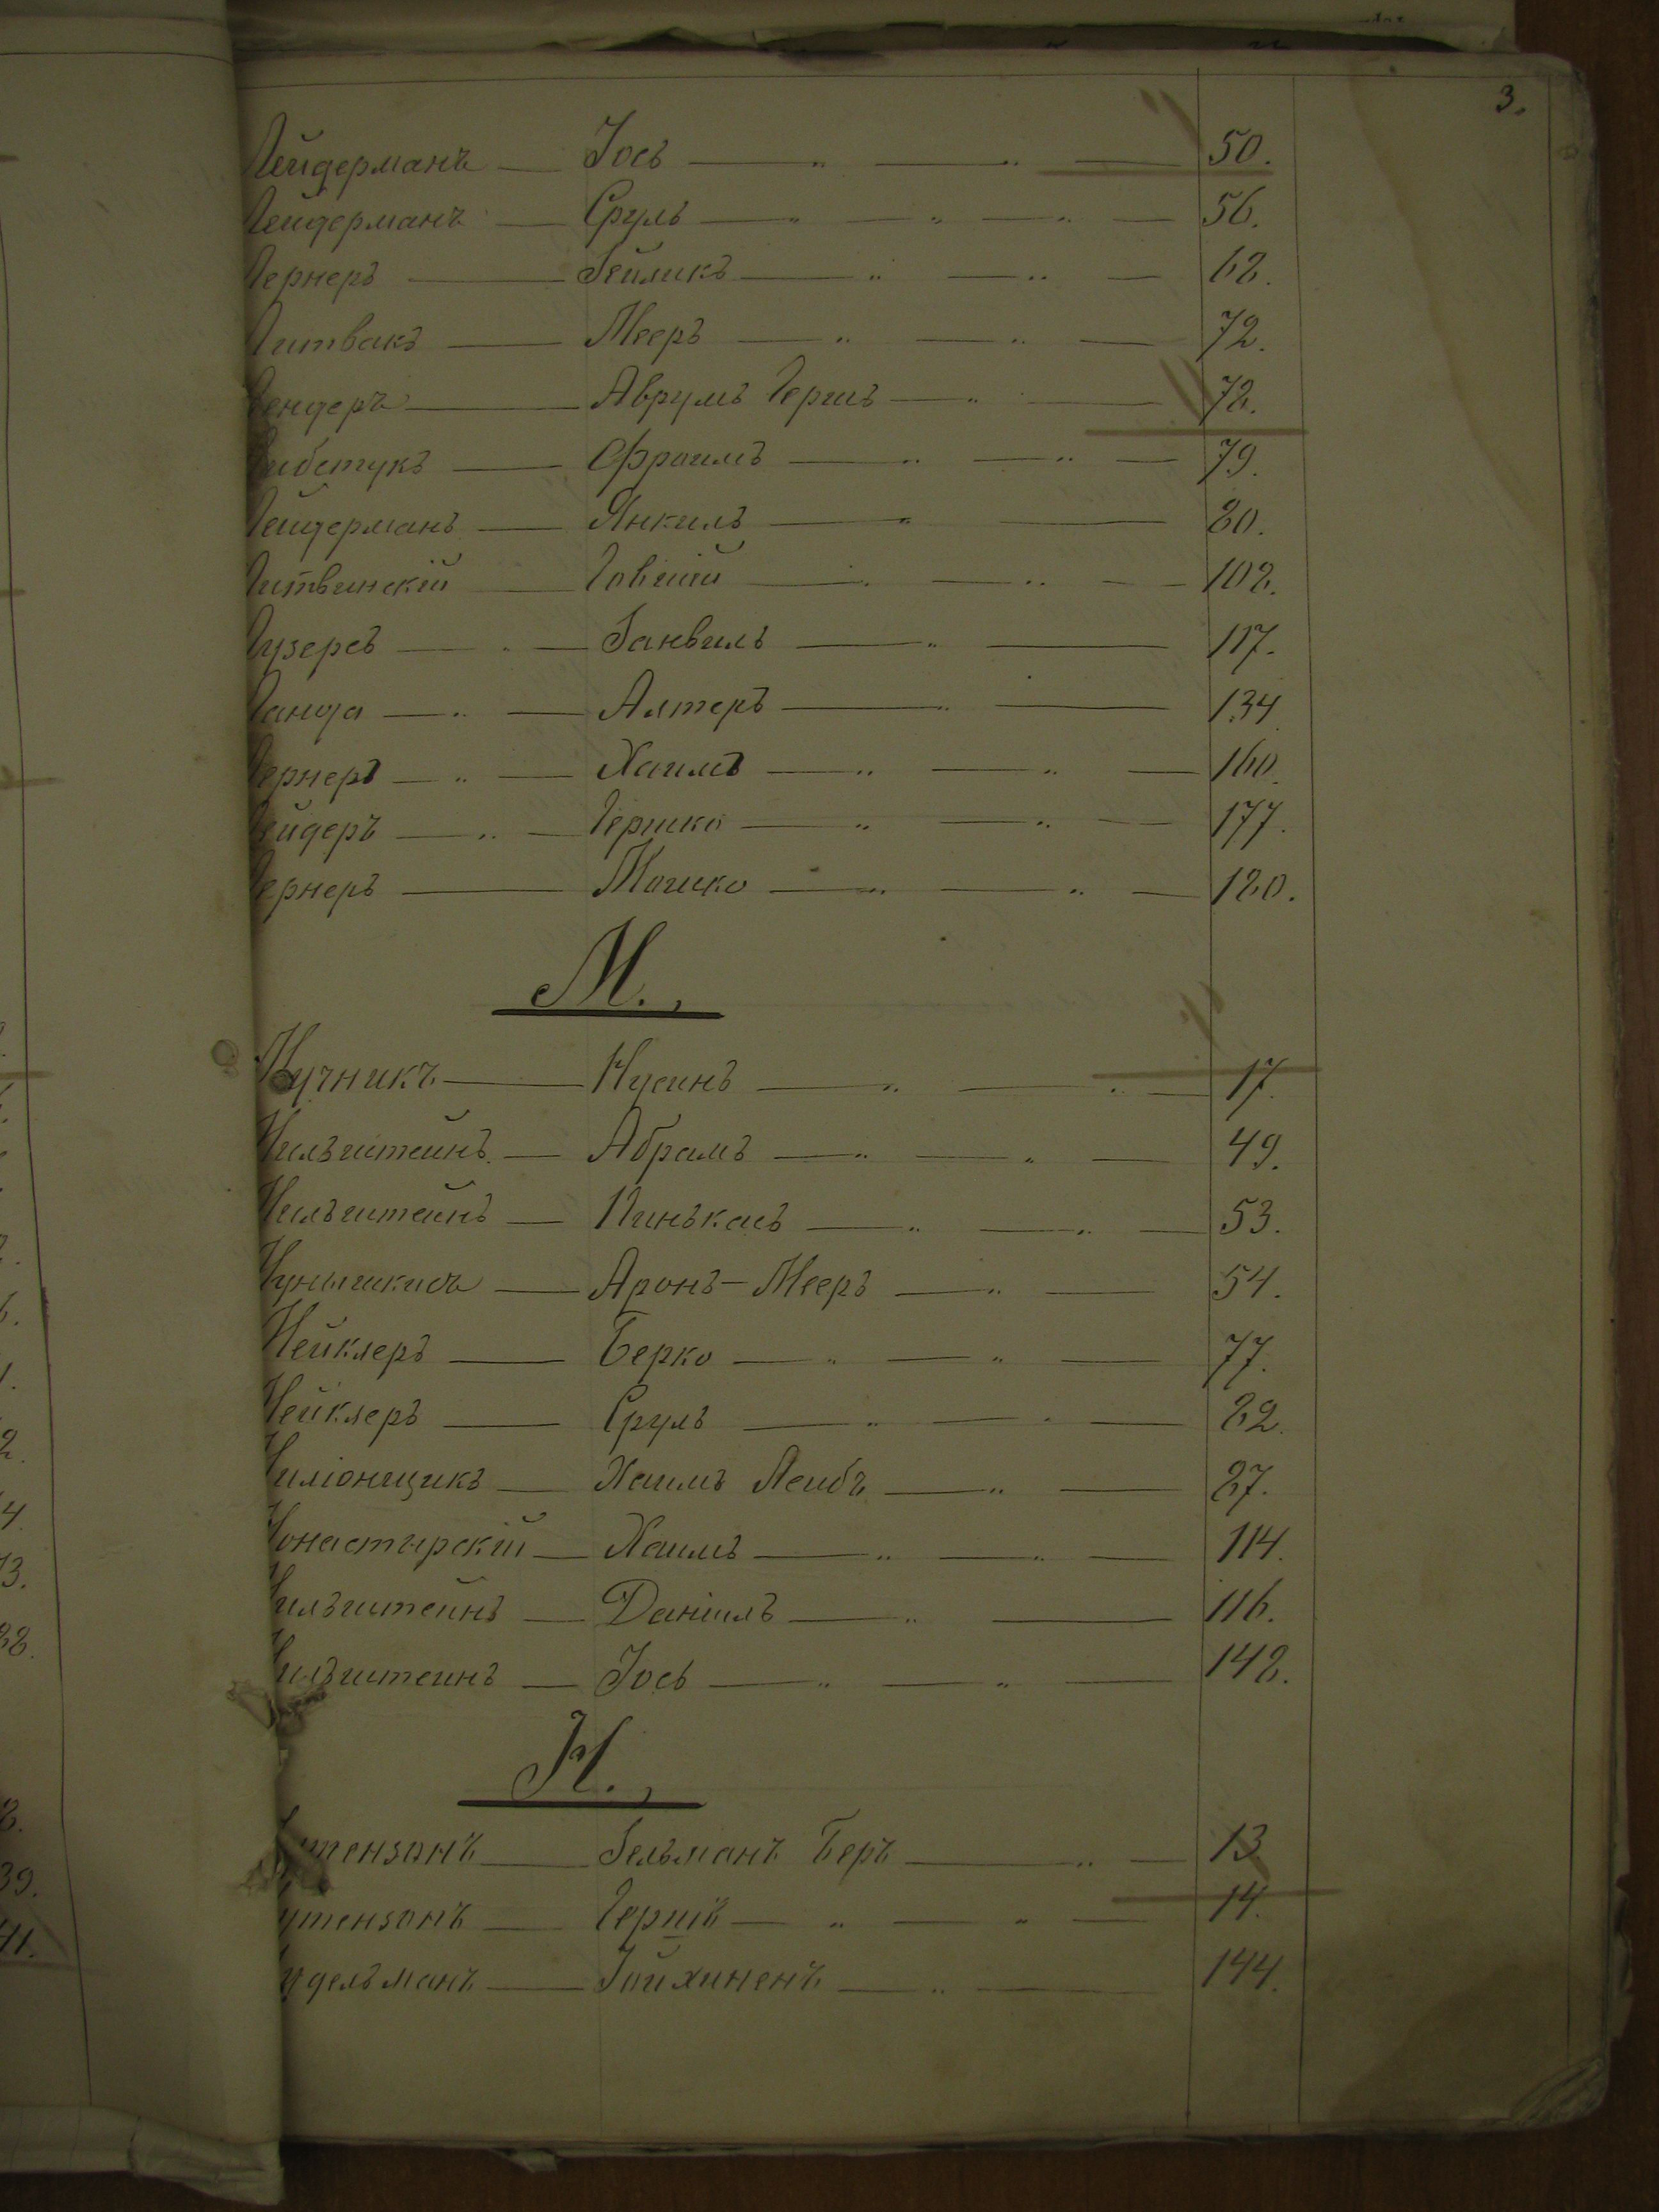 3.
Лейдерманъ — Іось — „ — „ — 50.
Лейдерманъ — Сруль — „ — „ — „ — 56.
Лернеръ — Зейликъ — „ — „ — 68.
Литвакъ — Мееръ — „ — „ — 72.
Лендеръ — Аврумъ Гершъ — „ — 78.
Либстукъ — Фроимъ — „ — „ — 79.
Лейдерманъ — Янкиль — „ — 80.
Литвинскій — Говшій — „ — „ — 108.
Лузеръ — „ — Занвиль — „ — 117.
Ланда — „ — Алтеръ — „ — 134
Лернеръ — „ — Хаимъ — „ — „ — 160.
Лейдеръ — „ — Гершко — „ — „ — 177.
Лернеръ — Мошко — „ — „ — 180.
М.,
Мучникъ — Нусинъ — „ — „ — 17.
Мильштейнъ — Абрамъ — „ — „ — 49.
Мильштейнъ — Пинькасъ — „ — „ — 53.
Аронъ-Мееръ — „ — 54.
Меклеръ — Берко — „ — „ — 77.
Меклеръ — Сруль — „ — „ — 82.
Миліонщикъ — Хаимъ Лейбъ — „ — 87.
Монастырскій — Хаимъ — „ — „ — 114.
Мильштейнъ — Даніилъ — „ — 116.
Мильштейнъ — Іось — „ — „ — 148.
Н.,
Нутензонъ — Зельманъ Беръ — „ — 13.
Нутензонъ — Гершк — „ — „ — 14.
Нудельманъ — „ — 144.